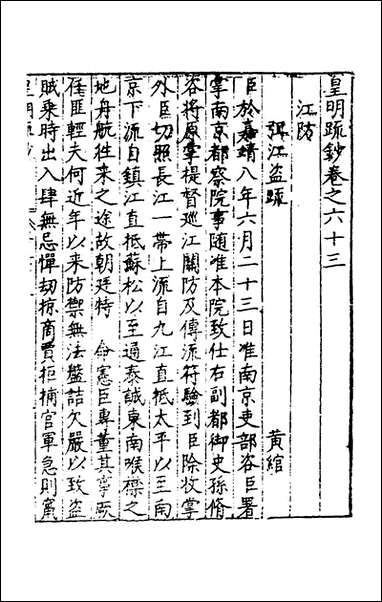 皇明疏鈔卷之六十三
江防
弭江盜疏 黃綰
臣於嘉靖八年六月二十三日准南京吏部咨臣署
掌南京都察院事隨准本院致仕右副都御史孫脩
咨將原掌提督巡江關防及傳流符驗到臣除收掌
外臣切照長江一帶上流自九江直抵太平以至南
京下流自鎮江直抵蘇松以至通泰誠東南喉襟之
地舟航往来之途故朝廷特 命憲臣專董其事厥
任匪輕夫何近年以来防禦無法盤詰欠嚴以致盜
賊乘時出入肆無忌憚刼掠商賈拒捕官軍急則竄